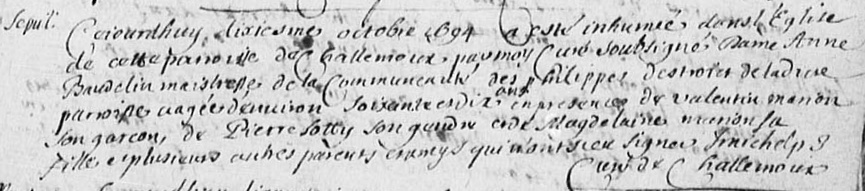 Sepult.
Cejourdhuy dixiesme octobre 1694 a esté inhumée dans l'Eglise
de cette parroisse de Challemoux par moy Curé soubsigné Dame Anne
Baudelin maistresse de la Communeauté des philippes destrois de ladite
parroisse aagée denviron soixante et dix ans en presence de valentin manon
son garcon, de Pierre Lotty son gendre et de Magdelaine manon sa
fille et plusieurs aultres parents et amys qui n'ont sceu signer
Curé de Challemoux